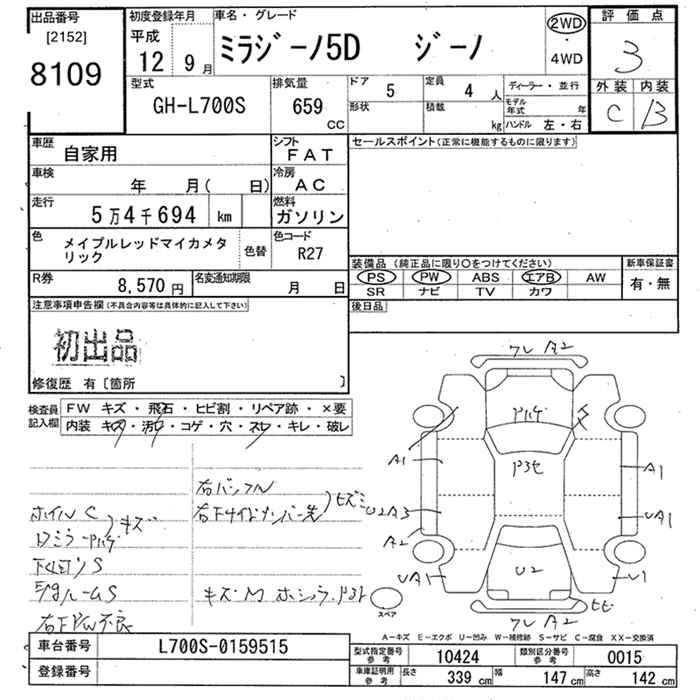 出品番号
[2152]
8109
初度登録年月
平成
12年9月
車名・グレード
ミラジーノ5D ジーノ
2WD
・
4WD
評価点
3
外装 内装
C B
型式
GH-L700S
排気量
659
CC
ドア 5
定員 4 人
形状
積載 kg
ディーラー・並行
モデル年式 年
ハンドル 左・右
車歴
自家用
シフト
FAT
車検
年 月( 日)
冷房
AC
走行
5万4千694 km
燃料
ガソリン
色
メイプルレッドマイカメタ
リック
色替
色コード
R27
R券
8,570円
名変通知期限
月 日
セールスポイント(正常に機能するものに限ります)
装備品(純正品に限り○をつけてください)
PS PW ABS エアB AW
SR ナビ TV カワ
新車保証書
有・無
後日品
注意事項申告欄(不具合内容等は具体的に記入して下さい)
初出品
修復歴 有[箇所 ]
検査員
記入欄
FW キズ・飛石・ヒビ割・リペア跡・×要
内装 キズ・汚れ・コゲ・穴・スレ・キレ・破レ
右バンパー
ホイルC
キズ
下廻りS
キズ・M
A2
A1
A1
U2A3
UA1
A2
U2
UA1
U1
A2
スペア
A-キズ E-エクボ U-凹み W-補修跡 S-サビ C-腐食 XX-交換済
車台番号 L700S-0159515
登録番号
型式指定番号
参考
10424
類別区分番号
参考
0015
車庫証明用
参考
長さ 339 cm
幅 147 cm
高さ 142 cm